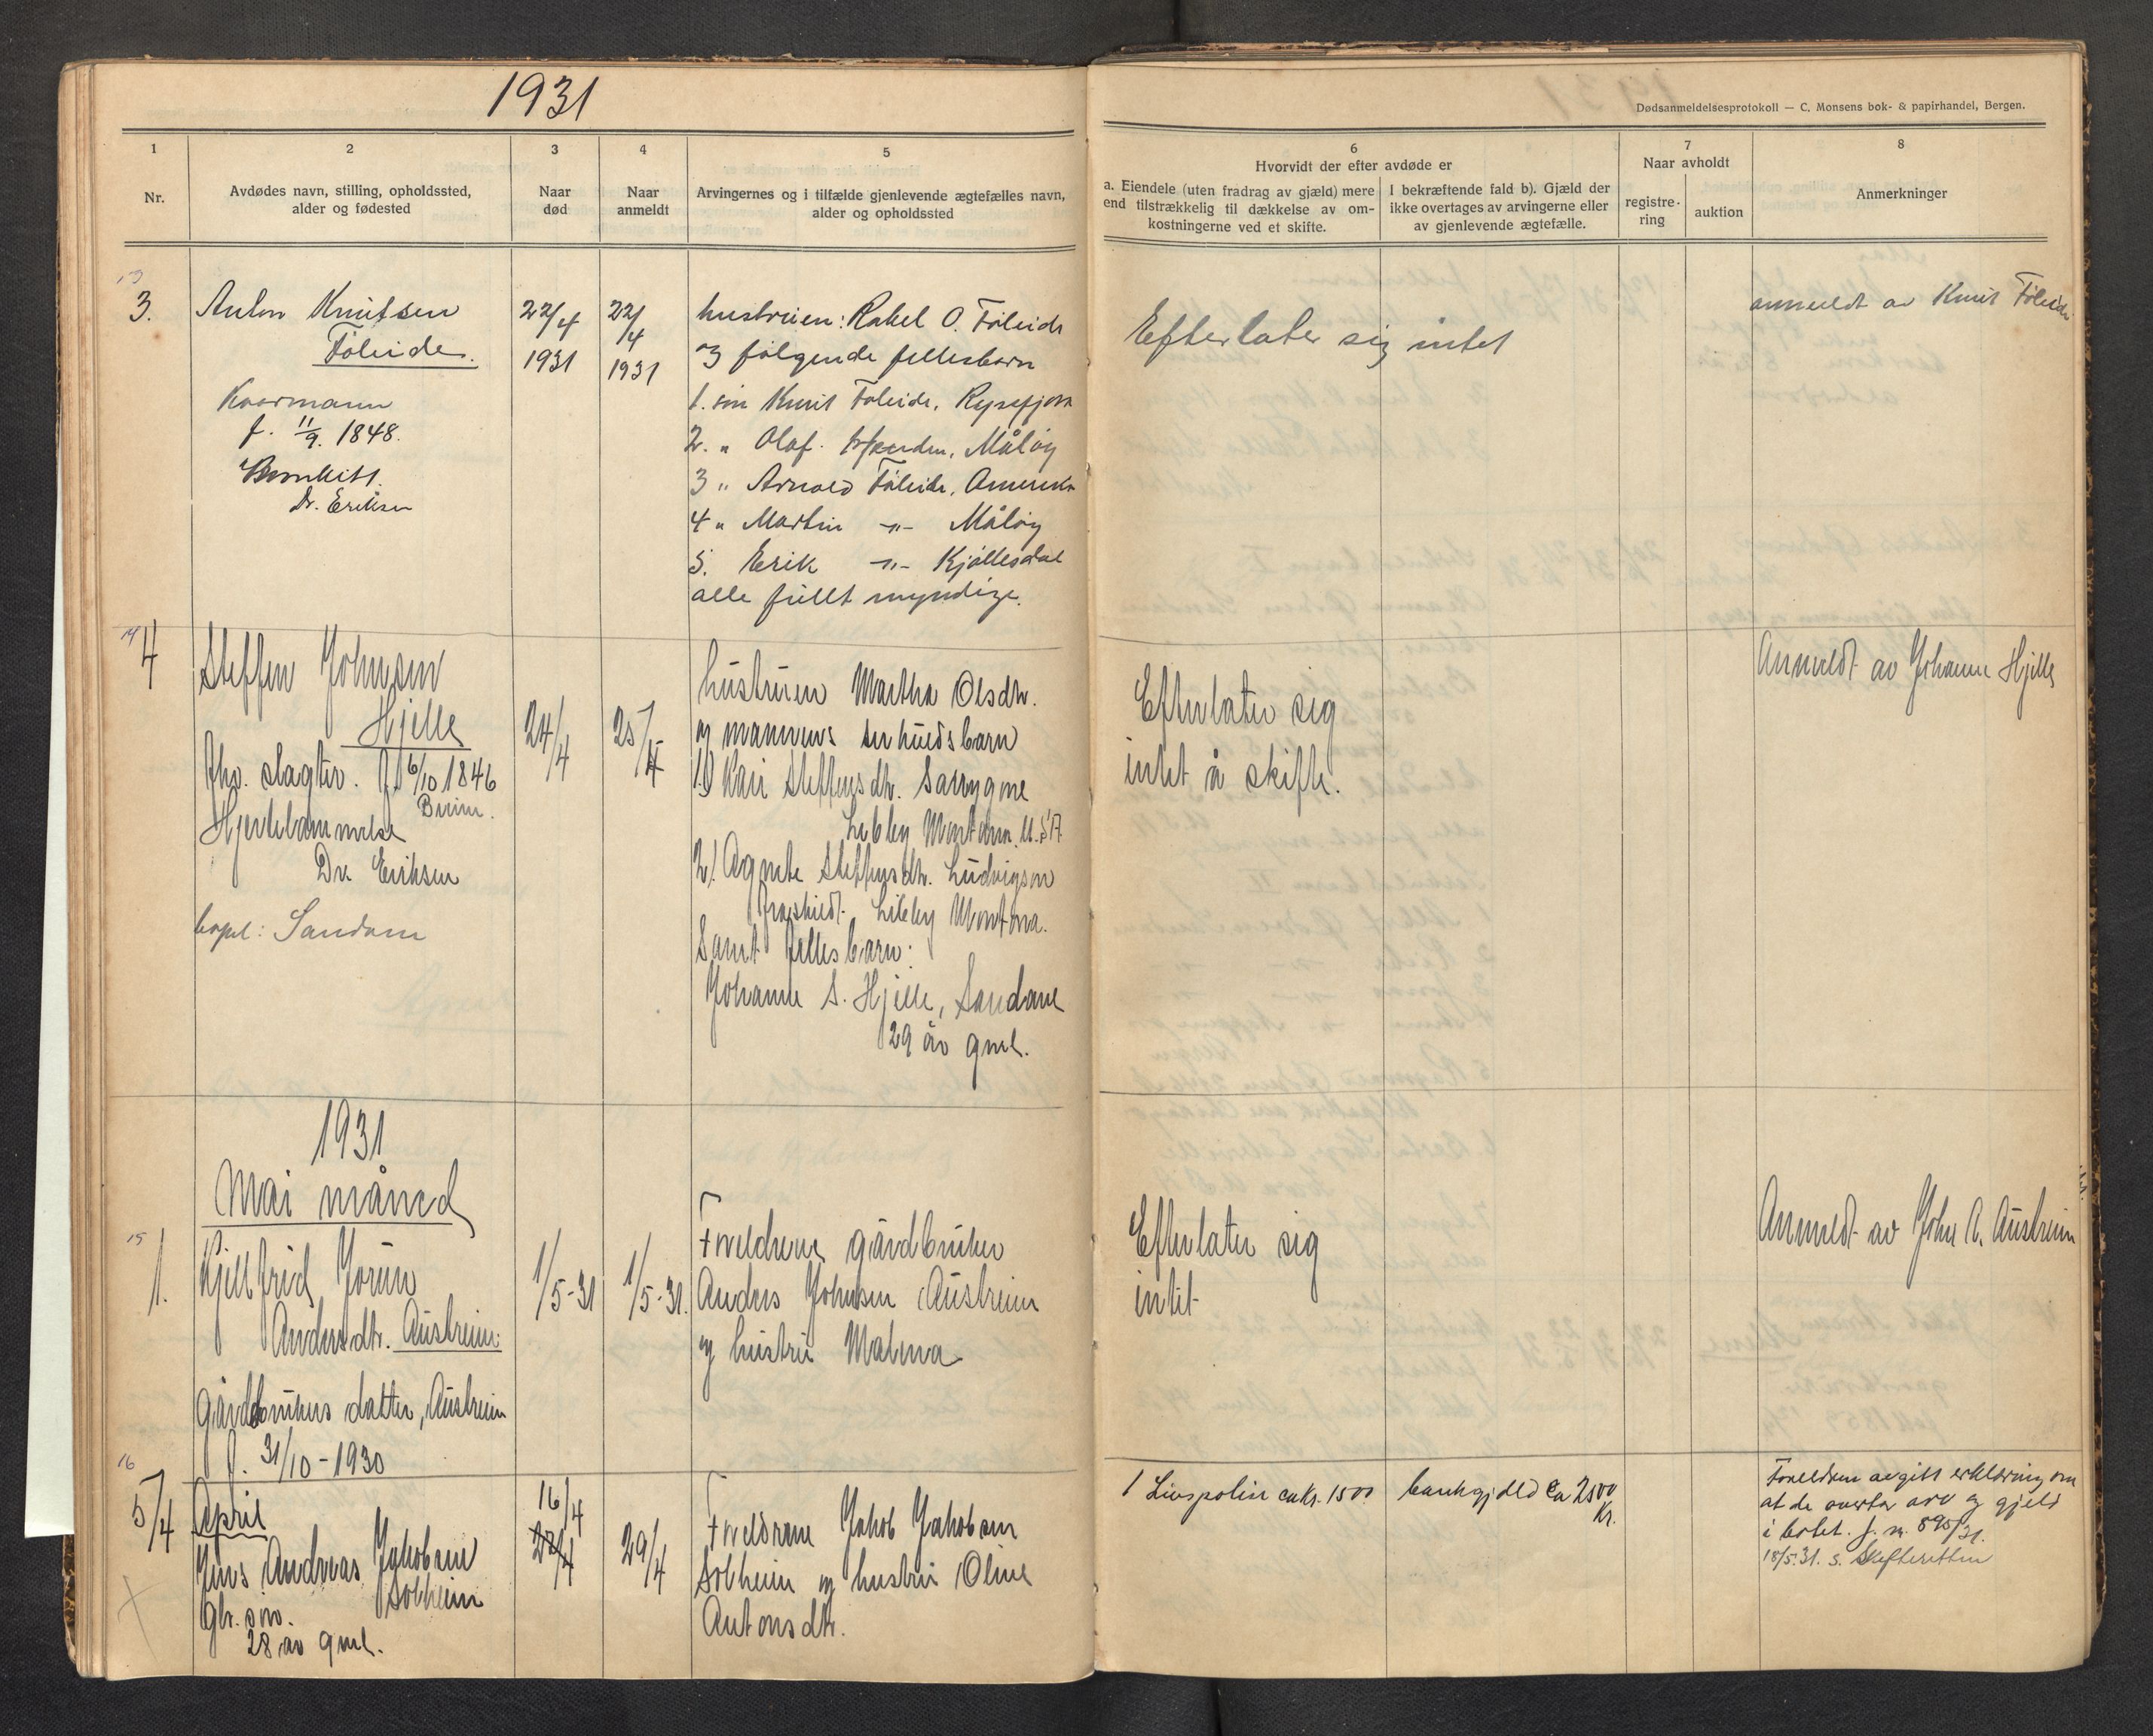 1931
Dødsanmeldelsesprotokoll — C. Monsens bok- & papirhandel, Bergen.
1
Nr.
2
Avdødes navn, stilling, opholdssted,
alder og fødested
3
Naar
død
4
Naar
anmeldt
5
Arvingernes og i tilfælde gjenlevende ægtefælles navn,
alder og opholdssted
6
Hvorvidt der efter avdøde er
a. Eiendele (uten fradrag av gjæld) mere
end tilstrækkelig til dækkelse av om-
kostningerne ved et skifte.
I bekræftende fald b). Gjæld der
ikke overtages av arvingerne eller
av gjenlevende ægtefælle.
7
Naar avholdt
registre-
ring
auktion
8
Anmerkninger
13
3.
Anton Knutsen
Föleide.
Kaarmann
f. 11/9. 1848.
Bronkitt.
Dr. Eriksen
22/4
1931
22/4
1931
hustruen: Rakel O. Föleide
og følgende fellesbarn
1. søn Knut Föleide,
2. " Olaf Måløy
3 " Arnold Föleide, Amerika
4 " Martin -"- Måløy
5. Erik -"- Kjöllesdal
alle fullt myndige.
Efterlater sig intet
anmeldt av Knut Föleide
14
4
Steffen Johnsen
Hjelle
fhv. slagter. f. 6/10 1846
Breim.
Hjertelammelse
Dr. Eriksen
bopel: Sandane
24/4
25/4
hustruen Martha Olsdtr.
og mannens serkuldsbarn
1) Kari Steffensdtr.
Libby Montana. U.S.A.
2) Agnete Steffensdtr. Ludvigson
fraskilt. Libby Montana.
Samt fellesbarn:
Johanne S. Hjelle, Sandane
29 år gml.
Efterlater sig
intet å skifte.
Anmeldt av Johanne Hjelle
1931
Mai måned
15
1.
Kjellfrid Jorun
Andersdtr. Austreim.
Gårdbrukers datter, Austreim
f. 31/10 - 1930
1/5-31
1/5-31.
Foreldrene gårdbruker
Anders Johnsen Austreim
og hustru Malena
Efterlater sig
intet
Anmeldt av John A. Austreim
16
5/4
April
Jens Andreas Jakobsen
Solheim
gbr. søn.
28 år gml.
16/4
22/4
29/4
Foreldrene Jakob Jakobsen
Solheim og hustru Oline
Antonsdtr.
1 Livspolise ca kr. 1500
bankgjeld ca 2500
Kr.
Foreldrene avgitt erklæring om
at de overtar arv og gjeld
i boet. J. nr. 895/31.
18/5.31. s. Skifteretten